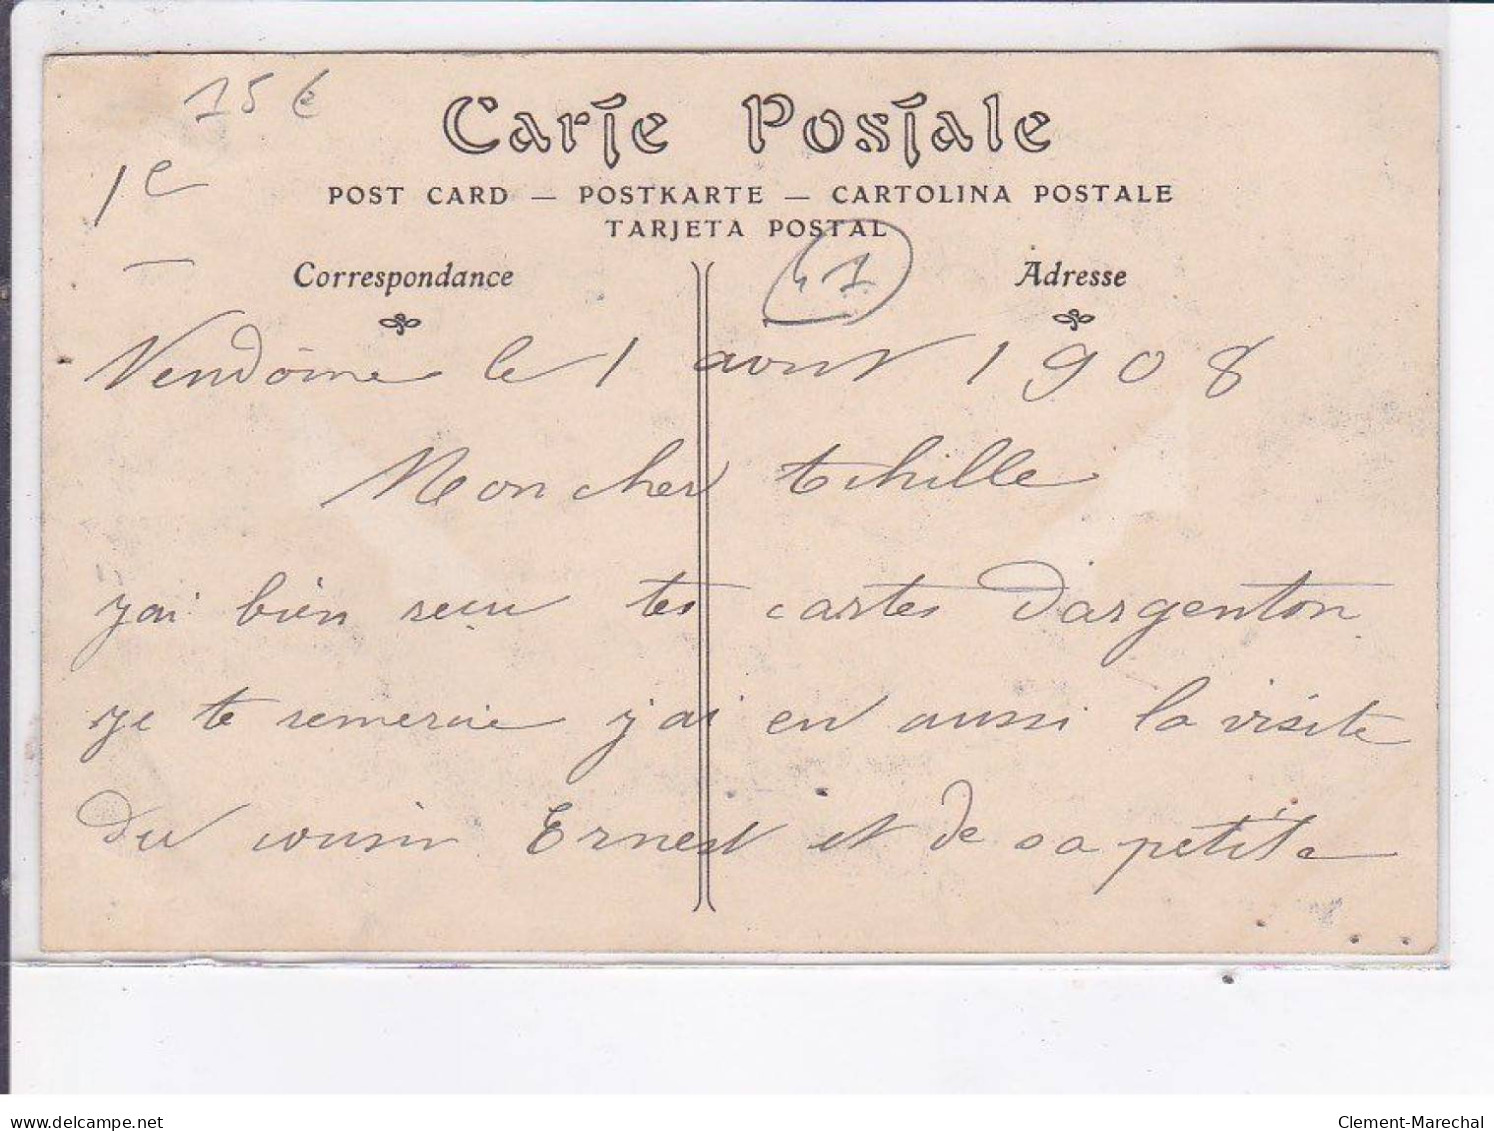 15 €
1e
Carte Postale
POST CARD — POSTKARTE — CARTOLINA POSTALE
TARJETA POSTAL
41
Correspondance
Adresse
Vendôme le 1 avril 1908
Mon cher Achille
j'ai bien recu tes cartes d'argenton
je te remercie j'ai eu aussi la visite
du cousin Ernest et de sa petite
delcampe.net
Clement-Marechal